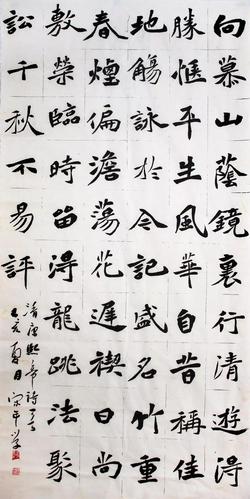 向慕山蔭鏡裏行清遊得
勝愜平生風華自昔稱佳
地觴詠於今記盛名竹重
春煙偏澹蕩花遲禊日尚
敷榮臨時留得龍跳法聚
訟千秋不易評
清康熙帝詩
亥夏日